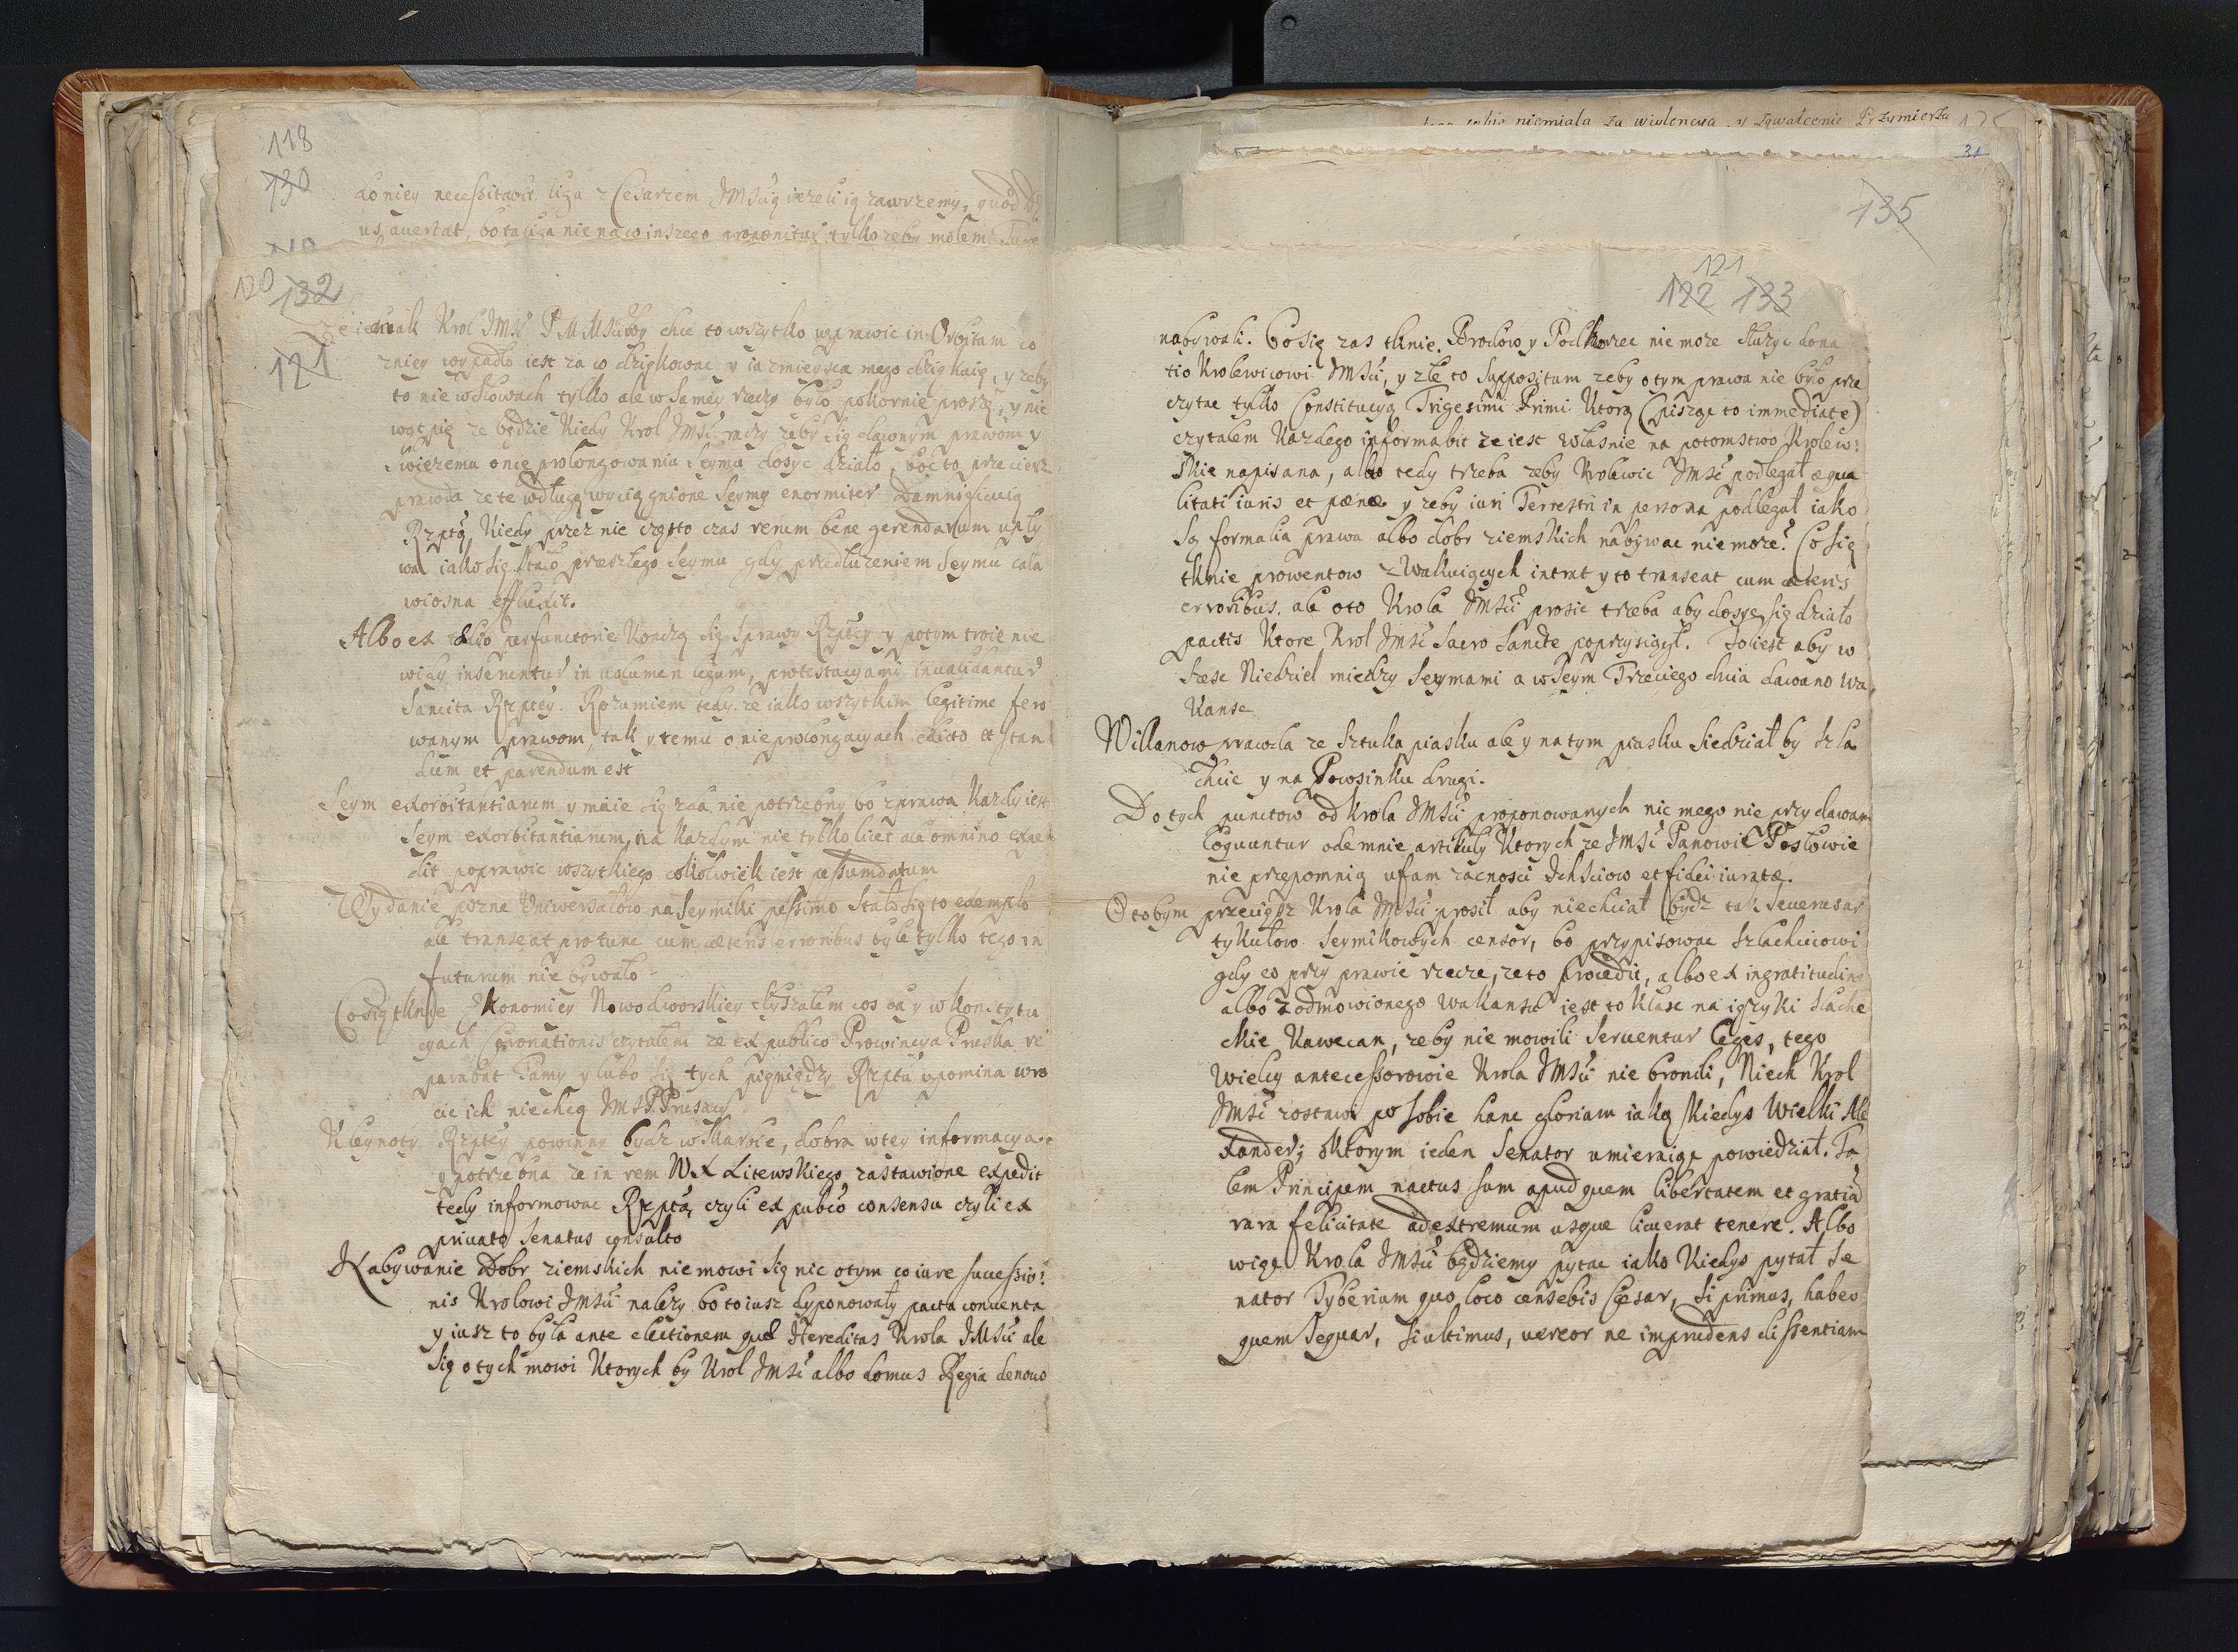 118
130
do niey necessitavit liga z Cesarzem JMscią ieżeli ią zawrzemy, quod D
us avertat, bo ta liga nie na co inszego proponitur tylko zeby molem
120 132
121
iednak Krol JMsc P M Msciwy chce to wszytko naprawic in Orbitam co
zniey wypadło iest za co dziękowac y ia zmieysca mego dziękuię, y zeby
to nie w słowach tylko ale w samey rzeczy było pokornie proszę, y nie
wątpię ze będzie kiedy Krol JMsc raczy zeby się dawnym prawom y
swiezemu o nie prolongowaniu Seymu dosyc działo, boc to przeciesz
prawda ze te wdługą wyciągnione Seymy enormiter damnificuią
Rzptą, kiedy przez nie często czas rerum bene gerendarum upły
wa iako się stało przeszłego Seymu gdy przedłuzeniem Seymu cała
wiosna effluxit.
Albo ex perfunctorie konczą się sprawy Rzptey y potym troie nie
widy inseruntur in volumen legum, protestacyami invalidantur
Sancita Rzptey. Rozumiem tedy ze iako wszytkim legitime fero
wanym prawom, tak y temu o nie prolongacyach edicto et stan
dum et parendum est
Seym exorbitantiarum y mnie się zda nie potrzebny bo z prawa kazdy iest
Seym exorbitantiarum, na kazdym nie tylko licet ale omnino expe
dit poprawic wszytkiego cokolwiek iest pessumdatum
Wydanie pozne Uniwersałow na Seymiki pessimo stało się to exemplo
ale transeat pro tunc cum cæteris erroribus byle tylko tego in
futurum nie bywało
Co się tknie Ekonomiey Nowodworskiey słyszałem cos ba y w konstytu
cyach Coronationis czytałem ze ex publico Prowincya Pruska re
parabat Tamy y lubo się tych pieniędzy Rzptā upomina wro
cic ich niechcą JMsc P Prusacy
Kleynoty Rzptey powinny bydz w skarbie, dobra w tey informacya
y potrzebna ze in rem W X Litewskiego zastawione expedit
tedy informowac Rzptą, czyli ex publico consensu czyli ex
privato Senatus consulto
Nabywanie Dobr ziemskich nie mowi się nic o tym co iure successio
nis Krolowi JMsci nalezy bo to iusz dyponowały pacta conventa
y iusz to była ante electionem Hereditas Krola JMsci ale
się o tych mowi ktorych by Krol JMsc albo domus Regia denovo
niemiala za wiolencya y zgwałcenie Przymierza
31
135
121
122 133
nabywali. Co się zas tknie Brodow y Podhorzec nie moze słuzyc dona
tio Krolewicowi JMsci, y złe to suppositum zeby o tym prawa nie było prze
czytac tylko Constitucyą Trigesimi Primi ktorą (pisząc to immediate)
czytałem kazdego informabit ze iest własnie na potomstwo Krolew:
skie napisana, albo tedy trzeba zeby Krolewic JMsc podlegał æqua
litati iuris et pænæ y zeby iuri Terrestri in persona podlegał iako
są formalia prawa albo dobr ziemskich nabywac nie moze. Co się
tknie prowentow z Wakuiących intrat y to transeat cum cæteris
erroribus, ale oto Krola JMsci prosic trzeba aby dosyc się działo
pactis ktore Krol JMsc Sacro Sancte poprzysiągł. To iest aby w
szesc Niedziel miedzy Seymami a w Seym Trzeciego dnia dawano Wa
kanse
Willanow prawda ze sztuka piasku ale y na tym piasku siedział by szla
chcic y na Powsinku drugi.
Do tych punctow od Krola JMsci proponowanych nic mego nie przydawam
loquuntur odemnie artikuły ktorych ze JMsc Panowie Posłowie
nie przepomnią ufam zacnosci Ichsciow et fidei iuratæ.
O to bym przeciesz Krola JMsci prosił aby niechciał bydz tak severus ar
tykułow Seymikowych censor, bo przypisowac szlachcicowi
gdy co przy prawie rzecze, ze to procedit, albo ex ingratitudine
albo z odmowionego Wakansu iest to kłasc na ięzyki szlache
ckie kawecan, zeby nie mowili serventur leges, tego
Wielcy antecessorowie Krola JMsci nie bronili, Niech Krol
JMsc zostawi po sobie hanc gloriam iaką kiedys Wielki Ale
xander; o ktorym ieden Senator umieraiąc powiedział. Ta
lem Principem nactus sum apud quem libertatem et gratiā
rara felicitate ad extremum usque licuerat tenere. Albo
więc Krola JMsci będziemy pytac iako kiedys pytał Se
nator Tyberium quo loco censebis Cæsar, si primus, habeo
quem sequar, si ultimus, vereor ne imprudens dissentiam